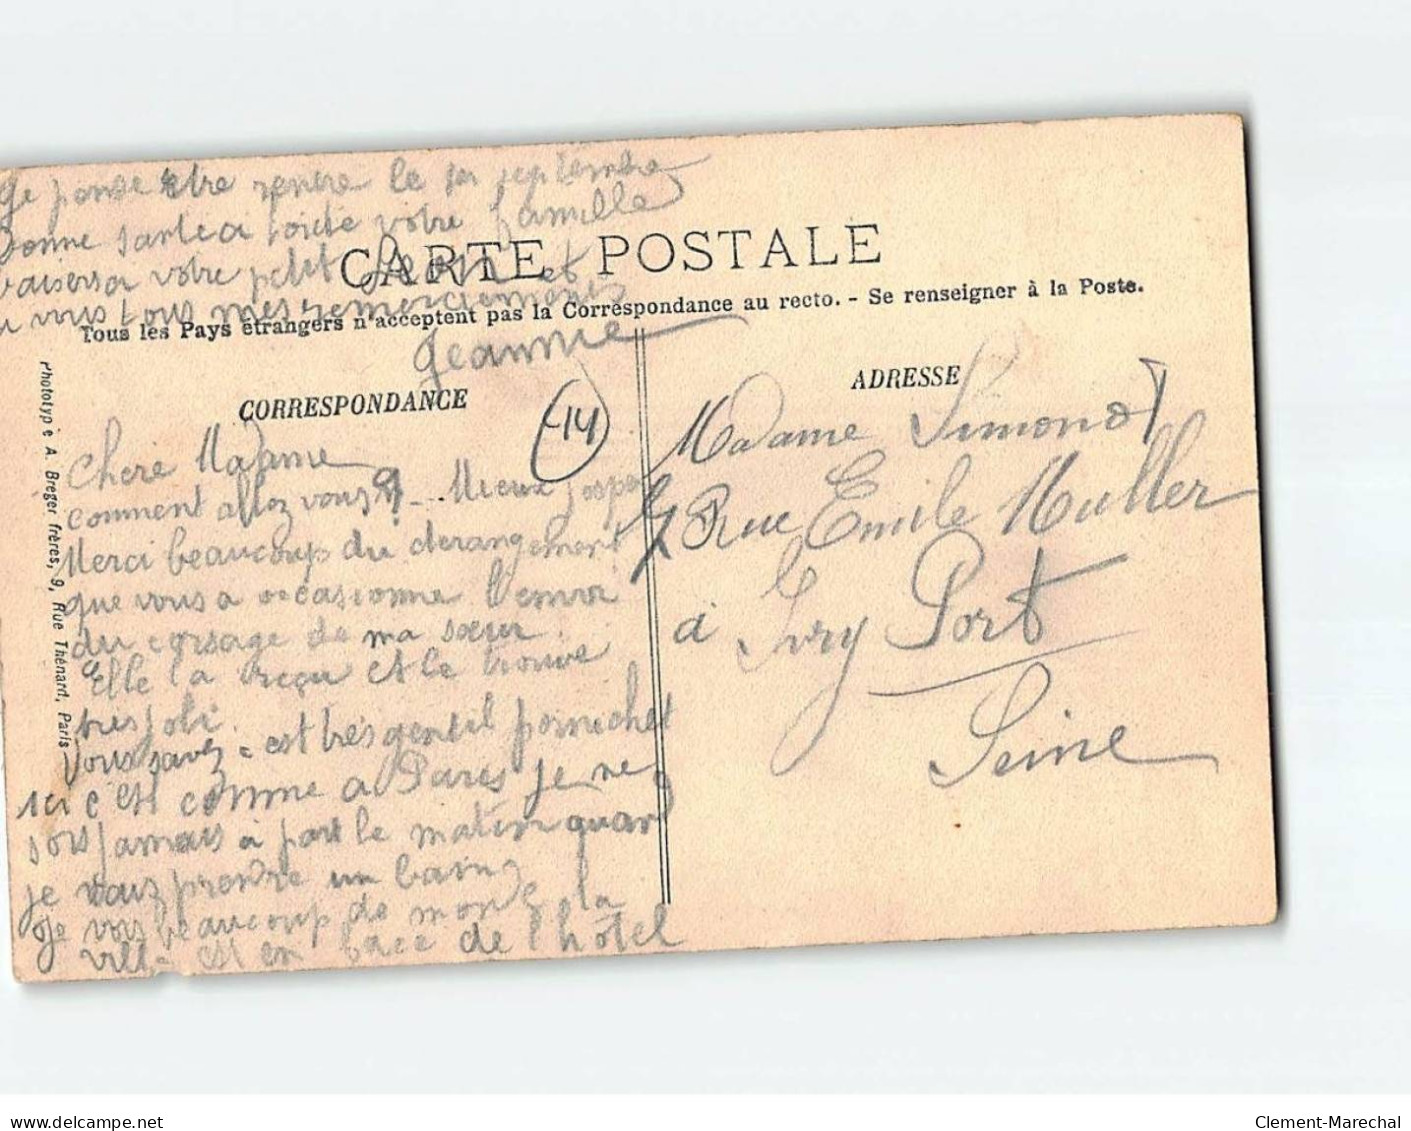 Je pense etre rentré le 1er septembre
Bonne santé a toute votre famille
baisers a votre petit et
a vous tous mes remerciements
Jeannne
CARTE POSTALE
Tous les Pays étrangers n'acceptent pas la Correspondance au recto. - Se renseigner à la Poste.
CORRESPONDANCE
14
Chere Madame
comment allez vous ? Mieux j'espere
Merci beaucoup du derangement
que vous a occasionne l'envoi
du corsage de ma sœur
Elle l'a reçu et le trouve
tres joli.
Vous savez c est très gentil pornichet
ici c'est comme a Paris je ne
sors jamais à part le matin quand
je vais prendre un bain
je vois beaucoup de monde la
ville est en face de l'hôtel
ADRESSE
Madame Simonot
7 Rue Emile Muller
à Ivry Port
Seine
Phototypie A. Breger frères, 9, Rue Thénard, Paris
www.delcampe.net
Clement-Marechal